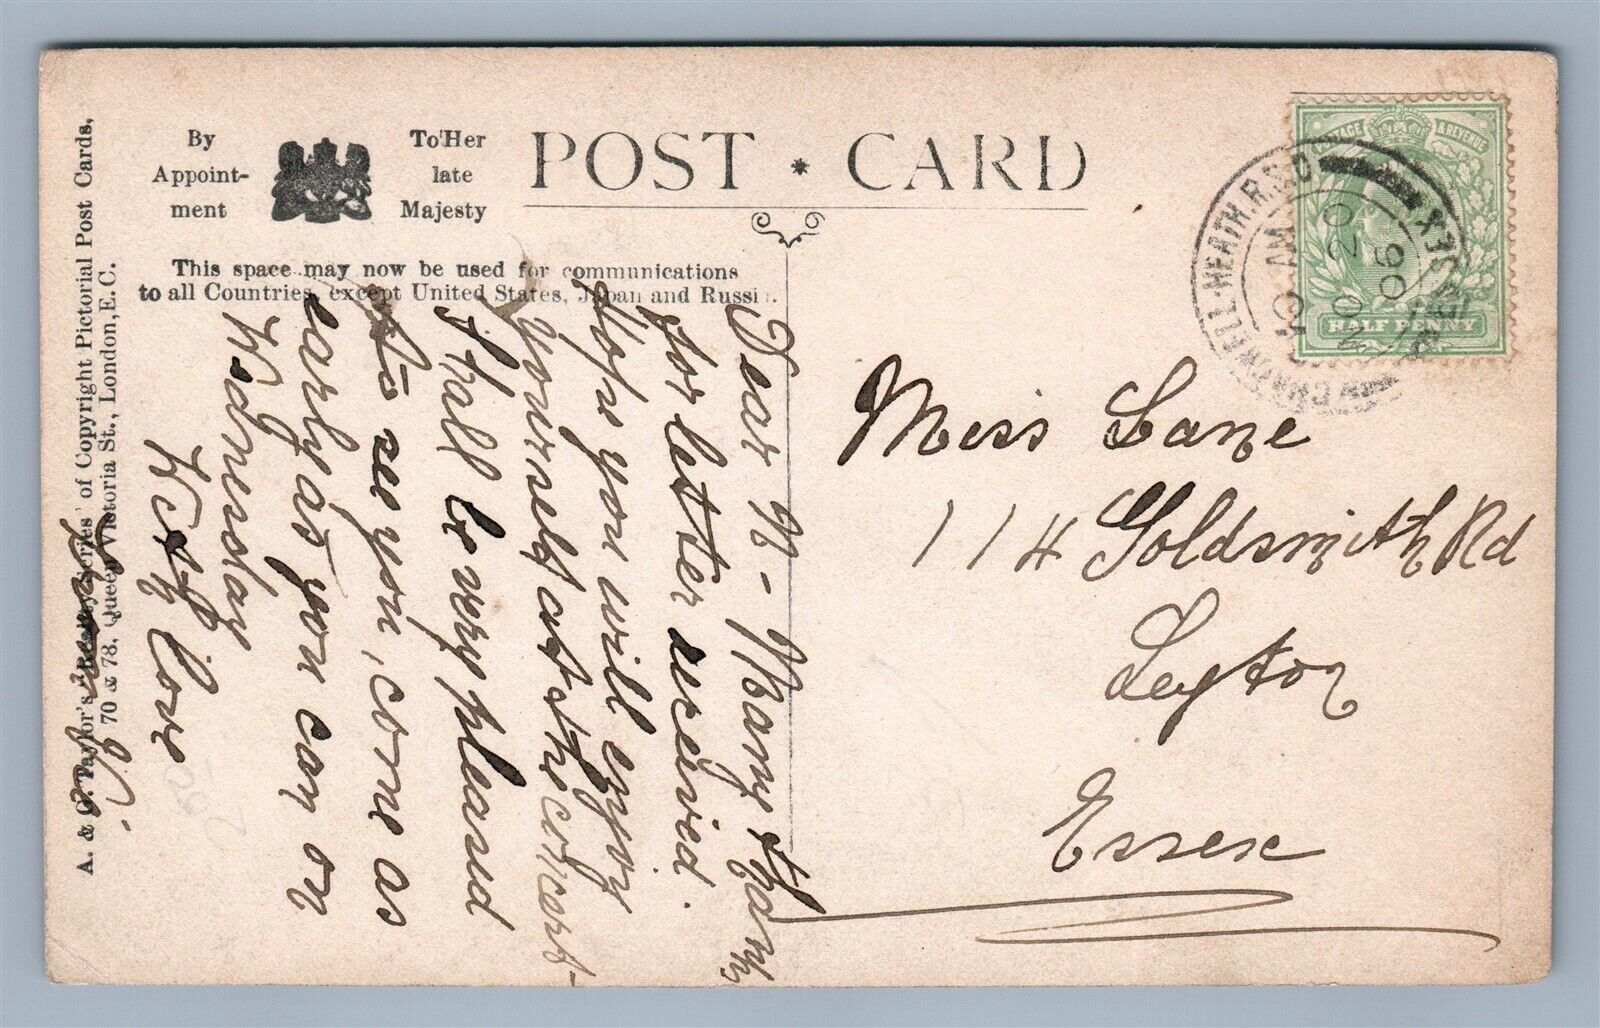 By
Appoint-
ment
To Her
late
Majesty
POST CARD
This space may now be used for communications
to all Countries, except United States, Japan and Russia.
A. & G. Taylor's "Reality Series" of Copyright Pictorial Post Cards,
70 & 78, Queen Victoria St., London, E.C.
Dear N - Many thanks
for letter received.
Hope you will enjoy
yourself at the concert
I shall be very pleased
to see you, come as
early as you can on
Wednesday
With love
POSTAGE & REVENUE
HALF PENNY
CHADWELL-HEATH.R.S.O
ESSEX
AM
OC 20
06
Miss Lane
114 Goldsmith Rd
Leyton
Essex